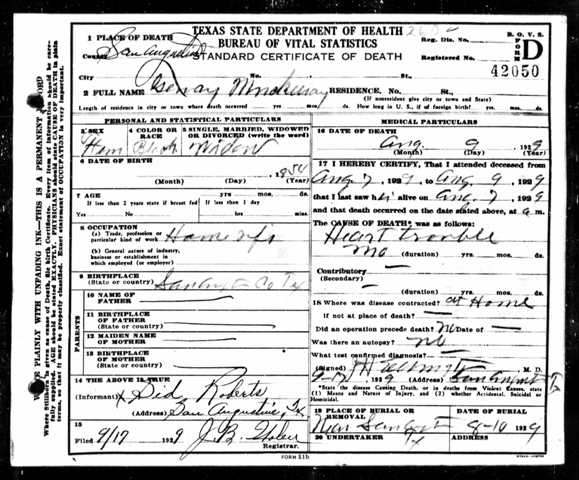 TEXAS STATE DEPARTMENT OF HEALTH
BUREAU OF VITAL STATISTICS
STANDARD CERTIFICATE OF DEATH
B. O. V. S.
FORM D
Reg. Dis. No.
Registered No.
42050
1 PLACE OF DEATH
County San Augustine
City No. St.,
2 FULL NAME RESIDENCE. No. St.,
(If nonresident give city or town and State)
Length of residence in city or town where death occurred yrs. mos. ds. How long in U. S., if of foreign birth? yrs. mos. ds.
PERSONAL AND STATISTICAL PARTICULARS
3 SEX
4 COLOR OR RACE
5 SINGLE, MARRIED, WIDOWED OR DIVORCED (write the word)
Fem Black Widow
6 DATE OF BIRTH
1854
(Month) (Day) (Year)
7 AGE
If less than 2 years state if breast fed
If less than 1 day
Yes No hrs. min.
8 OCCUPATION
(a) Trade, profession or particular kind of work
(b) General nature of industry, business or establishment in which employed (or employer)
9 BIRTHPLACE
(State or country)
PARENTS
10 NAME OF FATHER
11 BIRTHPLACE OF FATHER
(State or country)
12 MAIDEN NAME OF MOTHER
13 BIRTHPLACE OF MOTHER
(State or country)
14 THE ABOVE IS TRUE
(Informant) Sid Roberts
(Address) San Augustine, Tx
15
Filed 9/17 1929 J. B.
Registrar.
FORM 51b
MEDICAL PARTICULARS
16 DATE OF DEATH
Aug. 9 1929
(Month) (Day) (Year)
17 I HEREBY CERTIFY, That I attended deceased from
Aug 7, 1929, to Aug 9, 1929
that I last saw her alive on Aug 7, 1929
and that death occurred on the date stated above, at m.
The CAUSE OF DEATH* was as follows:
Heart trouble
(duration) yrs. mos. ds.
Contributory
(Secondary)
(duration) yrs. mos. ds.
18 Where was disease contracted? at Home
If not at place of death?
Did an operation precede death? No Date of
Was there an autopsy? No
What test confirmed diagnosis?
(Signed) M. D.
1929 (Address)
*State the disease Causing Death, or in deaths from Violent Causes, state (1) Means and Nature of Injury, and (2) whether Accidental, Suicidal or Homicidal.
19 PLACE OF BURIAL OR REMOVAL
DATE OF BURIAL
Near 8-10 1929
20 UNDERTAKER
ADDRESS
WRITE PLAINLY WITH UNFADING INK—THIS IS A PERMANENT RECORD